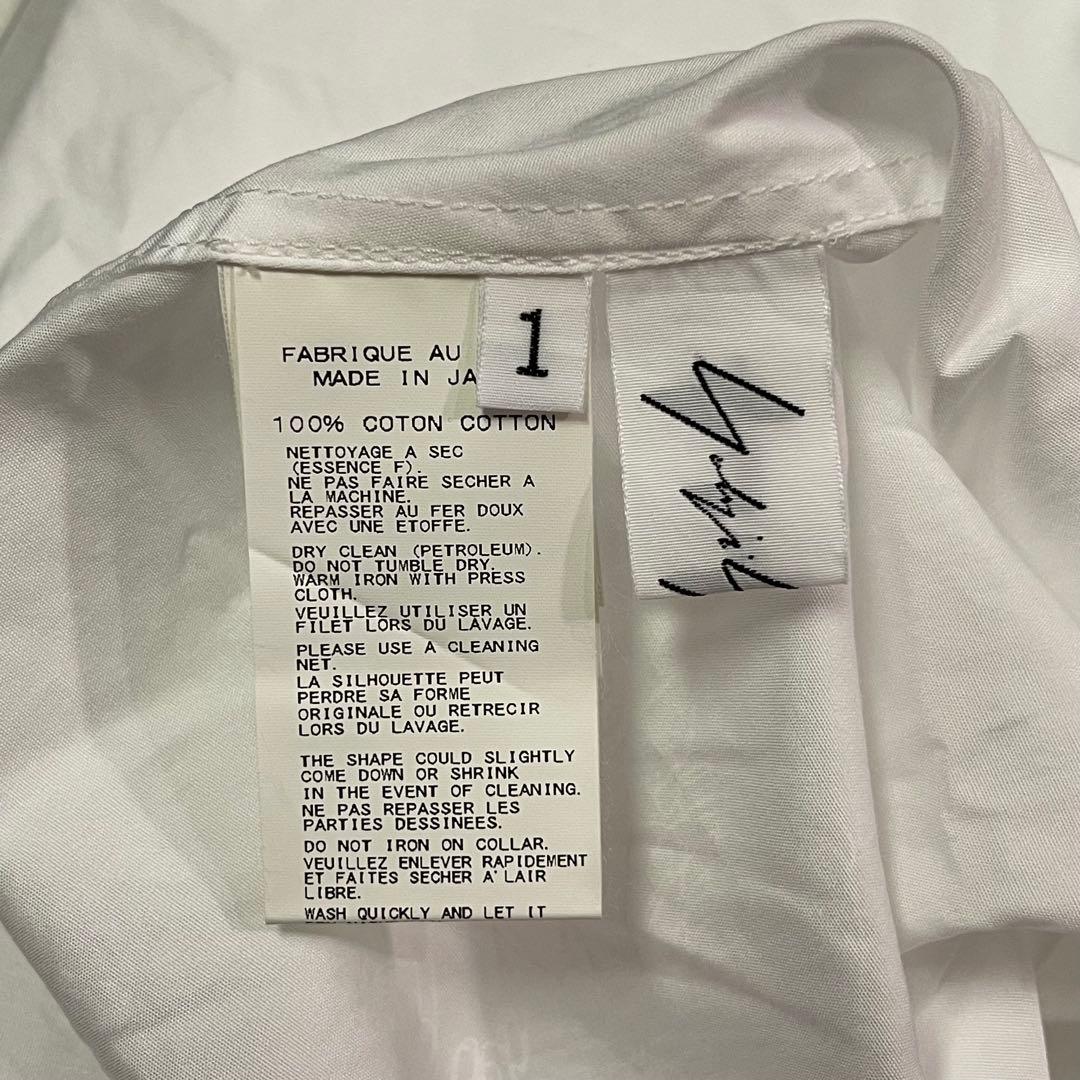 FABRIQUE AU
MADE IN JA
1
100% COTON COTTON
NETTOYAGE A SEC
(ESSENCE F).
NE PAS FAIRE SECHER A
LA MACHINE.
REPASSER AU FER DOUX
AVEC UNE ETOFFE.
DRY CLEAN (PETROLEUM).
DO NOT TUMBLE DRY.
WARM IRON WITH PRESS
CLOTH.
VEUILLEZ UTILISER UN
FILET LORS DU LAVAGE.
PLEASE USE A CLEANING
NET.
LA SILHOUETTE PEUT
PERDRE SA FORME
ORIGINALE OU RETRECIR
LORS DU LAVAGE.
THE SHAPE COULD SLIGHTLY
COME DOWN OR SHRINK
IN THE EVENT OF CLEANING.
NE PAS REPASSER LES
PARTIES DESSINEES.
DO NOT IRON ON COLLAR.
VEUILLEZ ENLEVER RAPIDEMENT
ET FAITES SECHER A'LAIR
LIBRE.
WASH QUICKLY AND LET IT